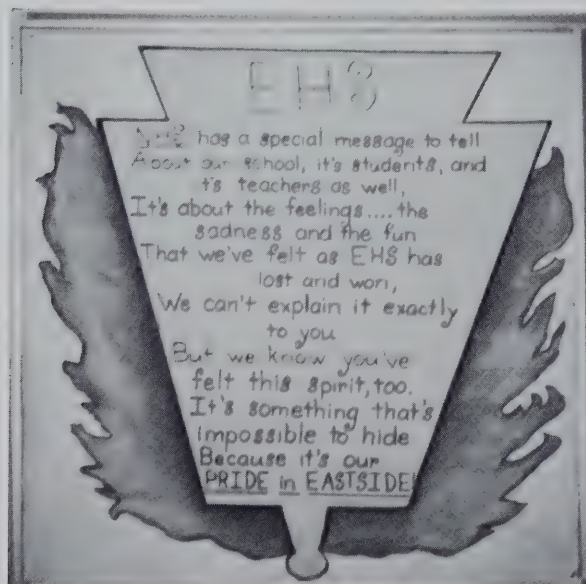 EHS
EHS has a special message to tell
About our school, it's students, and
it's teachers as well,
It's about the feelings.... the
sadness and the fun
That we've felt as EHS has
lost and won,
We can't explain it exactly
to you
But we know you've
felt this spirit, too.
It's something that's
impossible to hide
Because it's our
PRIDE in EASTSIDE!